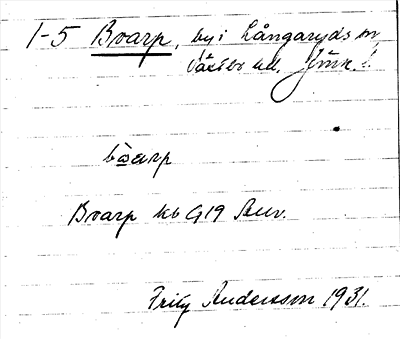 1-5 Boarp, by i Långaryds sn
Västbo hd. Jönk. l.
bòarp
Boarp kb G19 Buv.
Fritz Andersson 1931.